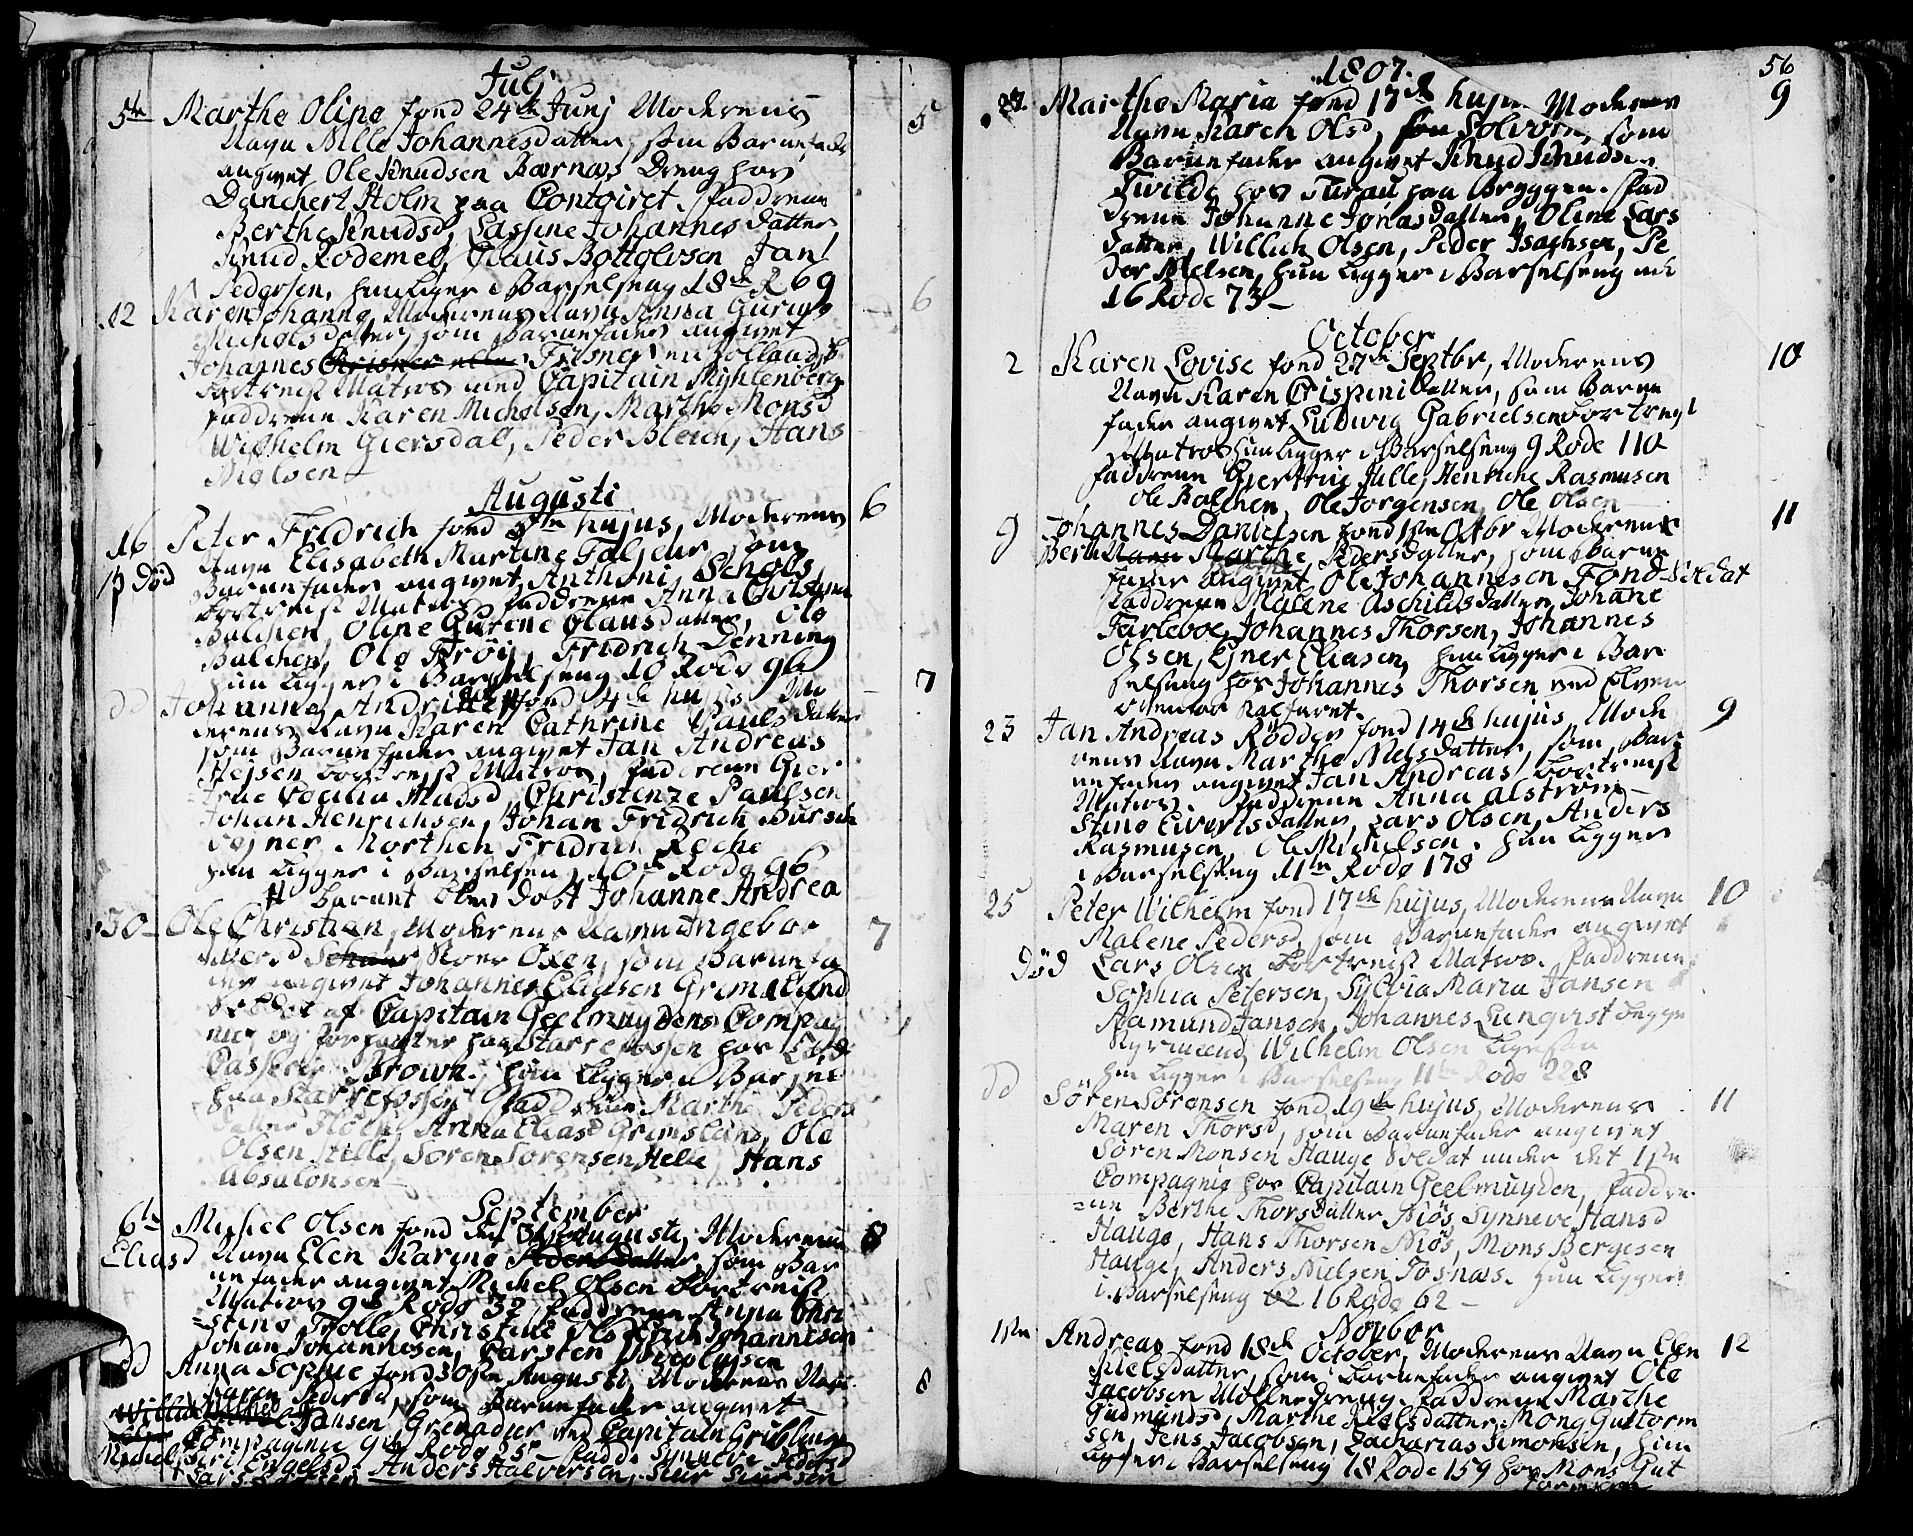 Julj
5te Marthe Oline fond 24de Junj Moderens 5
Navn Nille Johannesdatter, som Barnefader
angivet Ole Knudsen Bærnæs Dreng hos
Danchert Holm paa Contoiret. Faddrene
Berthe Knudsd, Lassine Johannesdatter
Knud Rodemel, Claus Bottolvsen Jan
Pedersen, hun ligger i Barselseng 18de R 69
12 Karen Johanna, Moderens Navn Anna Gurine 6
Michelsdatter, som Barnefader angivet
Johannes Frisner en hollandsk
bortreist Matros med Capitain Myhlenberg
faddrene Karen Michelsen, Marthe Monsd
Wilhelm Giersdal, Peder Blech, Hans
Nielsen
Augusti
16 Peter Fridrich fond 9de hujus, Moderens 6
Navn Elisabeth Martine Faljeur, som
død Barnefader angivet Anthoni Schols
bortreist Matros faddrene Anna Christina
Balchen, Oline Gurine Olausdatter, Ole
Balchen, Ole Frøy, Fridrich Denning
hun ligger i Barselseng 10 Rode 96
dd Johanne Andrea fond 4de hujus Mo 7
derens Navn Karen Cathrine Paulsdatter
som Barnefader angivet Jan Andreas
Heisen bortreist Matros, faddrene Gier
true Cecilia Madsd, Christenze Paulsen
Johan Henrichsen, Johan Fridrich Bursch
Morthen Fridrich Reche
hun ligger i Barselseng 10de Rode 96
Barnet blev døbt Johanne Andrea
30 Ole Christian, Moderens Navn Ingebor 7
Oxen, som Barnefa
der angivet Johannes Eliasen Grimslund
Soldat af Capitain Geelmuydens Compag
nie, og forpagter paa Starrefossen hos
Brown. hun ligger i Barsel
paa Starrefossen faddrene Marthe Peders
datter Anna Eliasd Grimslund, Ole
Olsen Helle, Søren Sørensen Helle, Hans
Absalonsen
September
6te Michel Olsen fond den 31te Augusti, Moderens 8
Eliasd Navn Elen Karine Pedersdatter, som Bar
nefader angivet Michel Olsen bortreist
Matros 9de Rode 32, faddrene Anna Chri
stine Trolle, Christine Olsd, Erich Johannesen
Johan Johannesen, Carsten
dd Anna Sophie fond 30te Augusti, Moderens Navn 8
Karen Pedersd, som Barnefader angivet
Jansen, Grenadeer ved Capitain Griblings
Compagnie 9de Rode 25 Fadd. Synneve Pedersd
Siri Engelsd, Anders Halversen, Siur Siursen
Lars
1807. 56
27 Marthe Maria fond 17de hujus Moderens 9
Navn Karen Olsd, fra Solvorn, som
Barnefader angivet Knud Knudsen
Tvilde hos Furau paa Bryggen. Fad
drene Johanne Jonasdatter, Oline Lars
datter, Willich Olsen, Peder Isachsen, Pe
der Nielsen, hun ligger i Barselseng udi
16 Rode 73
October
2 Karen Lovise fond 27de Septbr, Moderens 10
Navn Karen Crispinidatter, som Barne
fader angivet Ludwig Gabrielsen bortreist
Matros hun ligger i Barselseng 9 Rode 110
faddrene Giertrui Julle, Henriche Rasmusen
Ole Balchen, Ole Jorgensen, Ole Olsen
9 Johannes Danielsen fond 1ste Octbr Moderens 11
Navn Marthe Pedersdatter, som Barne
fader angivet Ole Johannesen Fond Soldat
faddrene Malene Aschildsdatter, Johane
Farleboe, Johannes Thorsen, Johannes
Olsen, Egner Eliasen, hun ligger i Bar
selseng hos Johannes Thorsen ved Elven
Kalfaret.
23 Jan Andreas Rødder fond 14de hujus, Mode 9
rens Navn Marthe Nilsdatter, som Bar
nefader angivet Jan Andreas, bortreist
Matros. faddrene Anna Alstrøm
Stine Evertsdatter, Lars Olsen, Anders
Rasmusen, Ole Michelsen. hun ligger
i Barselseng 11te Rode 178
25 Peter Wilhelm fond 17de hujus, Moderens Navn 10
Malene Pedersd, som Barnefader angivet
død Lars Olsen bortreist Matros. Faddrene
Sophia Petersen, Sylvia Maria Jansen
Aamund Jansen, Johannes Lunqvist begge
Styrmænd, Wilhelm Olsen
hun ligger i Barselseng 11te Rode 228
dd Søren Sørensen fond 19de hujus, Moderens 11
Maren Thorsd, som Barnefader angivet
Søren Monsen Hauge Soldat under det 1ste
Compagnie hos Capitain Geelmuyden, faddre
ne Berthe Thorsdatter Niøs, Synneve Hansd
Hauge, Hans Thorsen Niøs, Mons Bergesen
Hauge, Anders Nielsen Fosnæs. hun ligger
i Barselseng 62 16 Rode 62
Novbor
1ste Andreas fond 18de October, Moderens Navn Elen 12
Nielsdatter, som Barnefader angivet Ole
Jacobsen Møllerdreng, faddrene Marthe
Gudmundsd, Marthe Nielsdatter, Mons Guttorm
sen, Jens Jacobsen, Zacharias Simonsen, hun
ligger i Barselseng 18 Rode 159 hos Mons Gut